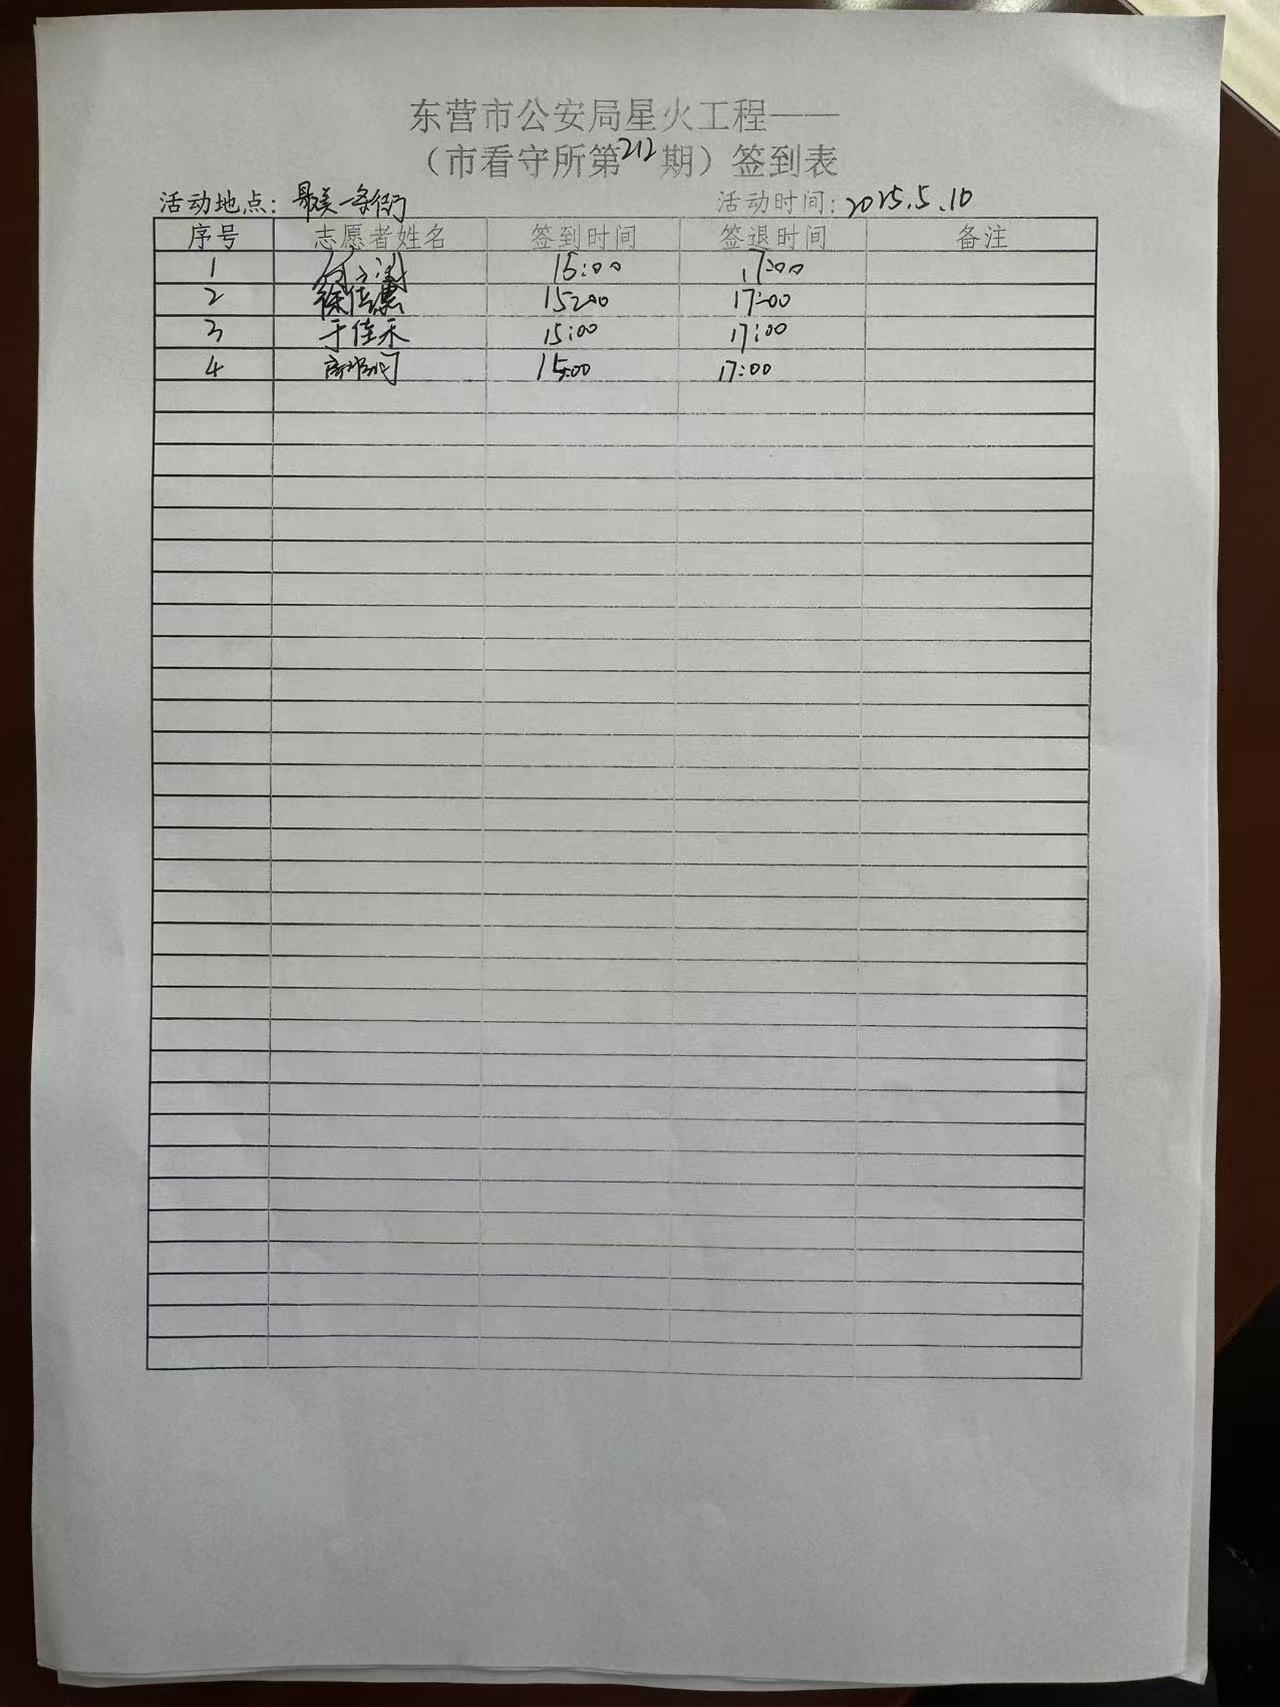 东营市公安局星火工程——
（市看守所第212期）签到表
活动地点：最美一条街 活动时间：2025.5.10
序号 志愿者姓名 签到时间 签退时间 备注
1 15:00 17:00
2 徐佳惠 15:00 17:00
3 于佳禾 15:00 17:00
4 15:00 17:00